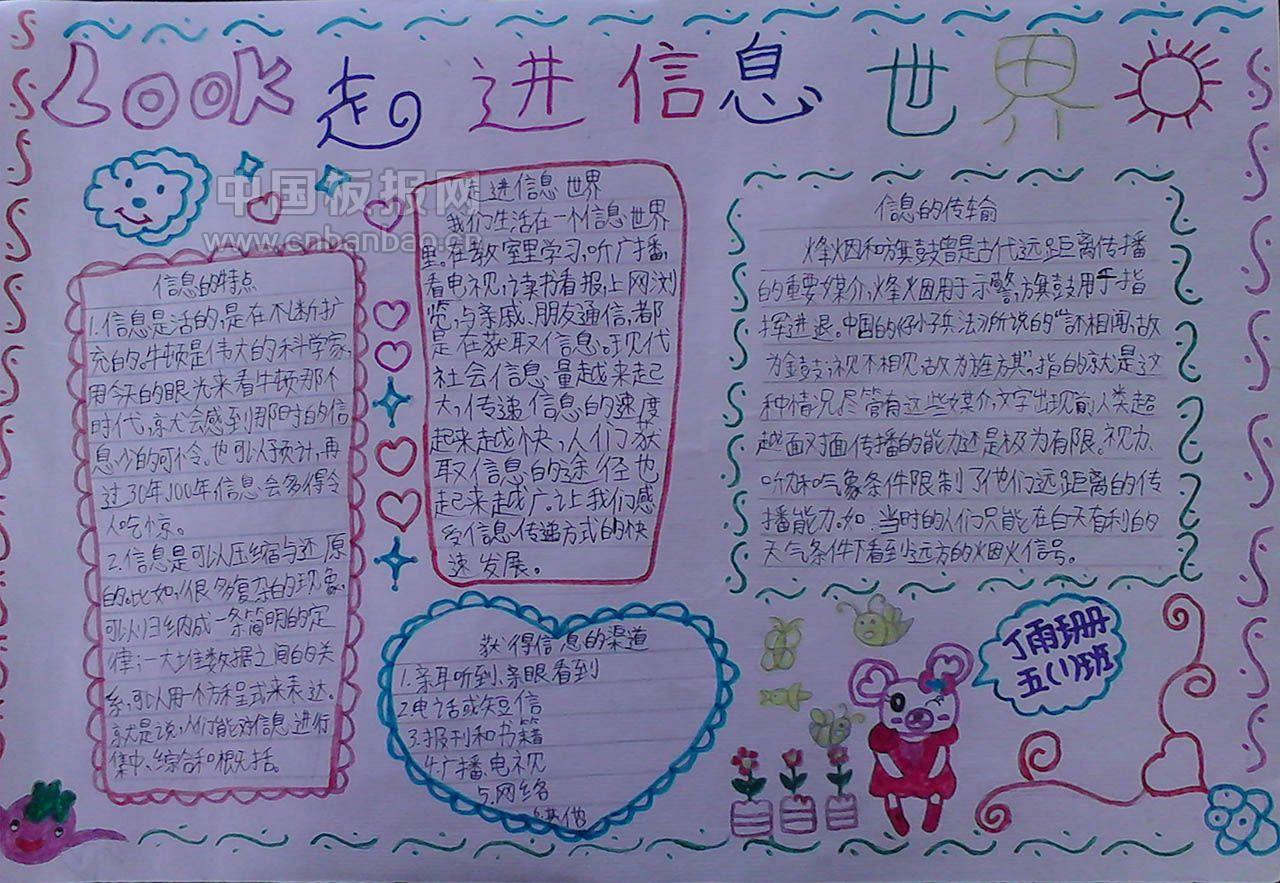 LOOK 走进信息世界
中国板报网
www.cnbanbao.cn
信息的特点
1.信息是活的,是在不断扩
充的。牛顿是伟大的科学家,
用今天的眼光来看牛顿那个
时代,就会感到那时的信
息少的可怜。也可以预计,再
过30年100年信息会多得令
人吃惊。
2.信息是可以压缩与还原
的。比如,很多复杂的现象,
可以归纳成一条简明的定
律;一大堆数据之间的关
系,可以用一个方程式来表达。
就是说,人们能对信息进行
集中、综合和概括。
走进信息世界
我们生活在一个信息世界
里。在教室里学习,听广播,
看电视,读书看报,上网浏
览,与亲戚、朋友通信,都
是在获取信息。现代
社会信息量越来起
大,传递信息的速度
起来越快,人们获
取信息的途径也
起来越广。让我们感
受信息传递方式的快
速发展。
获得信息的渠道
1.亲耳听到、亲眼看到
2.电话或短信
3.报刊和书籍
4.广播、电视
5.网络
6.其他
信息的传输
烽烟和旗鼓曾是古代远距离传播
的重要媒介,烽火因用于示警,旗鼓用于指
挥进退。中国的《孙子兵法》所说的“言不相闻,故
为金鼓;视不相见,故为旌旗”,指的就是这
种情况尽管有这些媒介,文字出现前,人类超
越面对面传播的能力还是极为有限。视力、
听力和气象条件限制了他们远距离的传
播能力。如,当时的人们只能在白天有利的
天气条件下看到远方的烟火信号。
丁雨珊
五(1)班